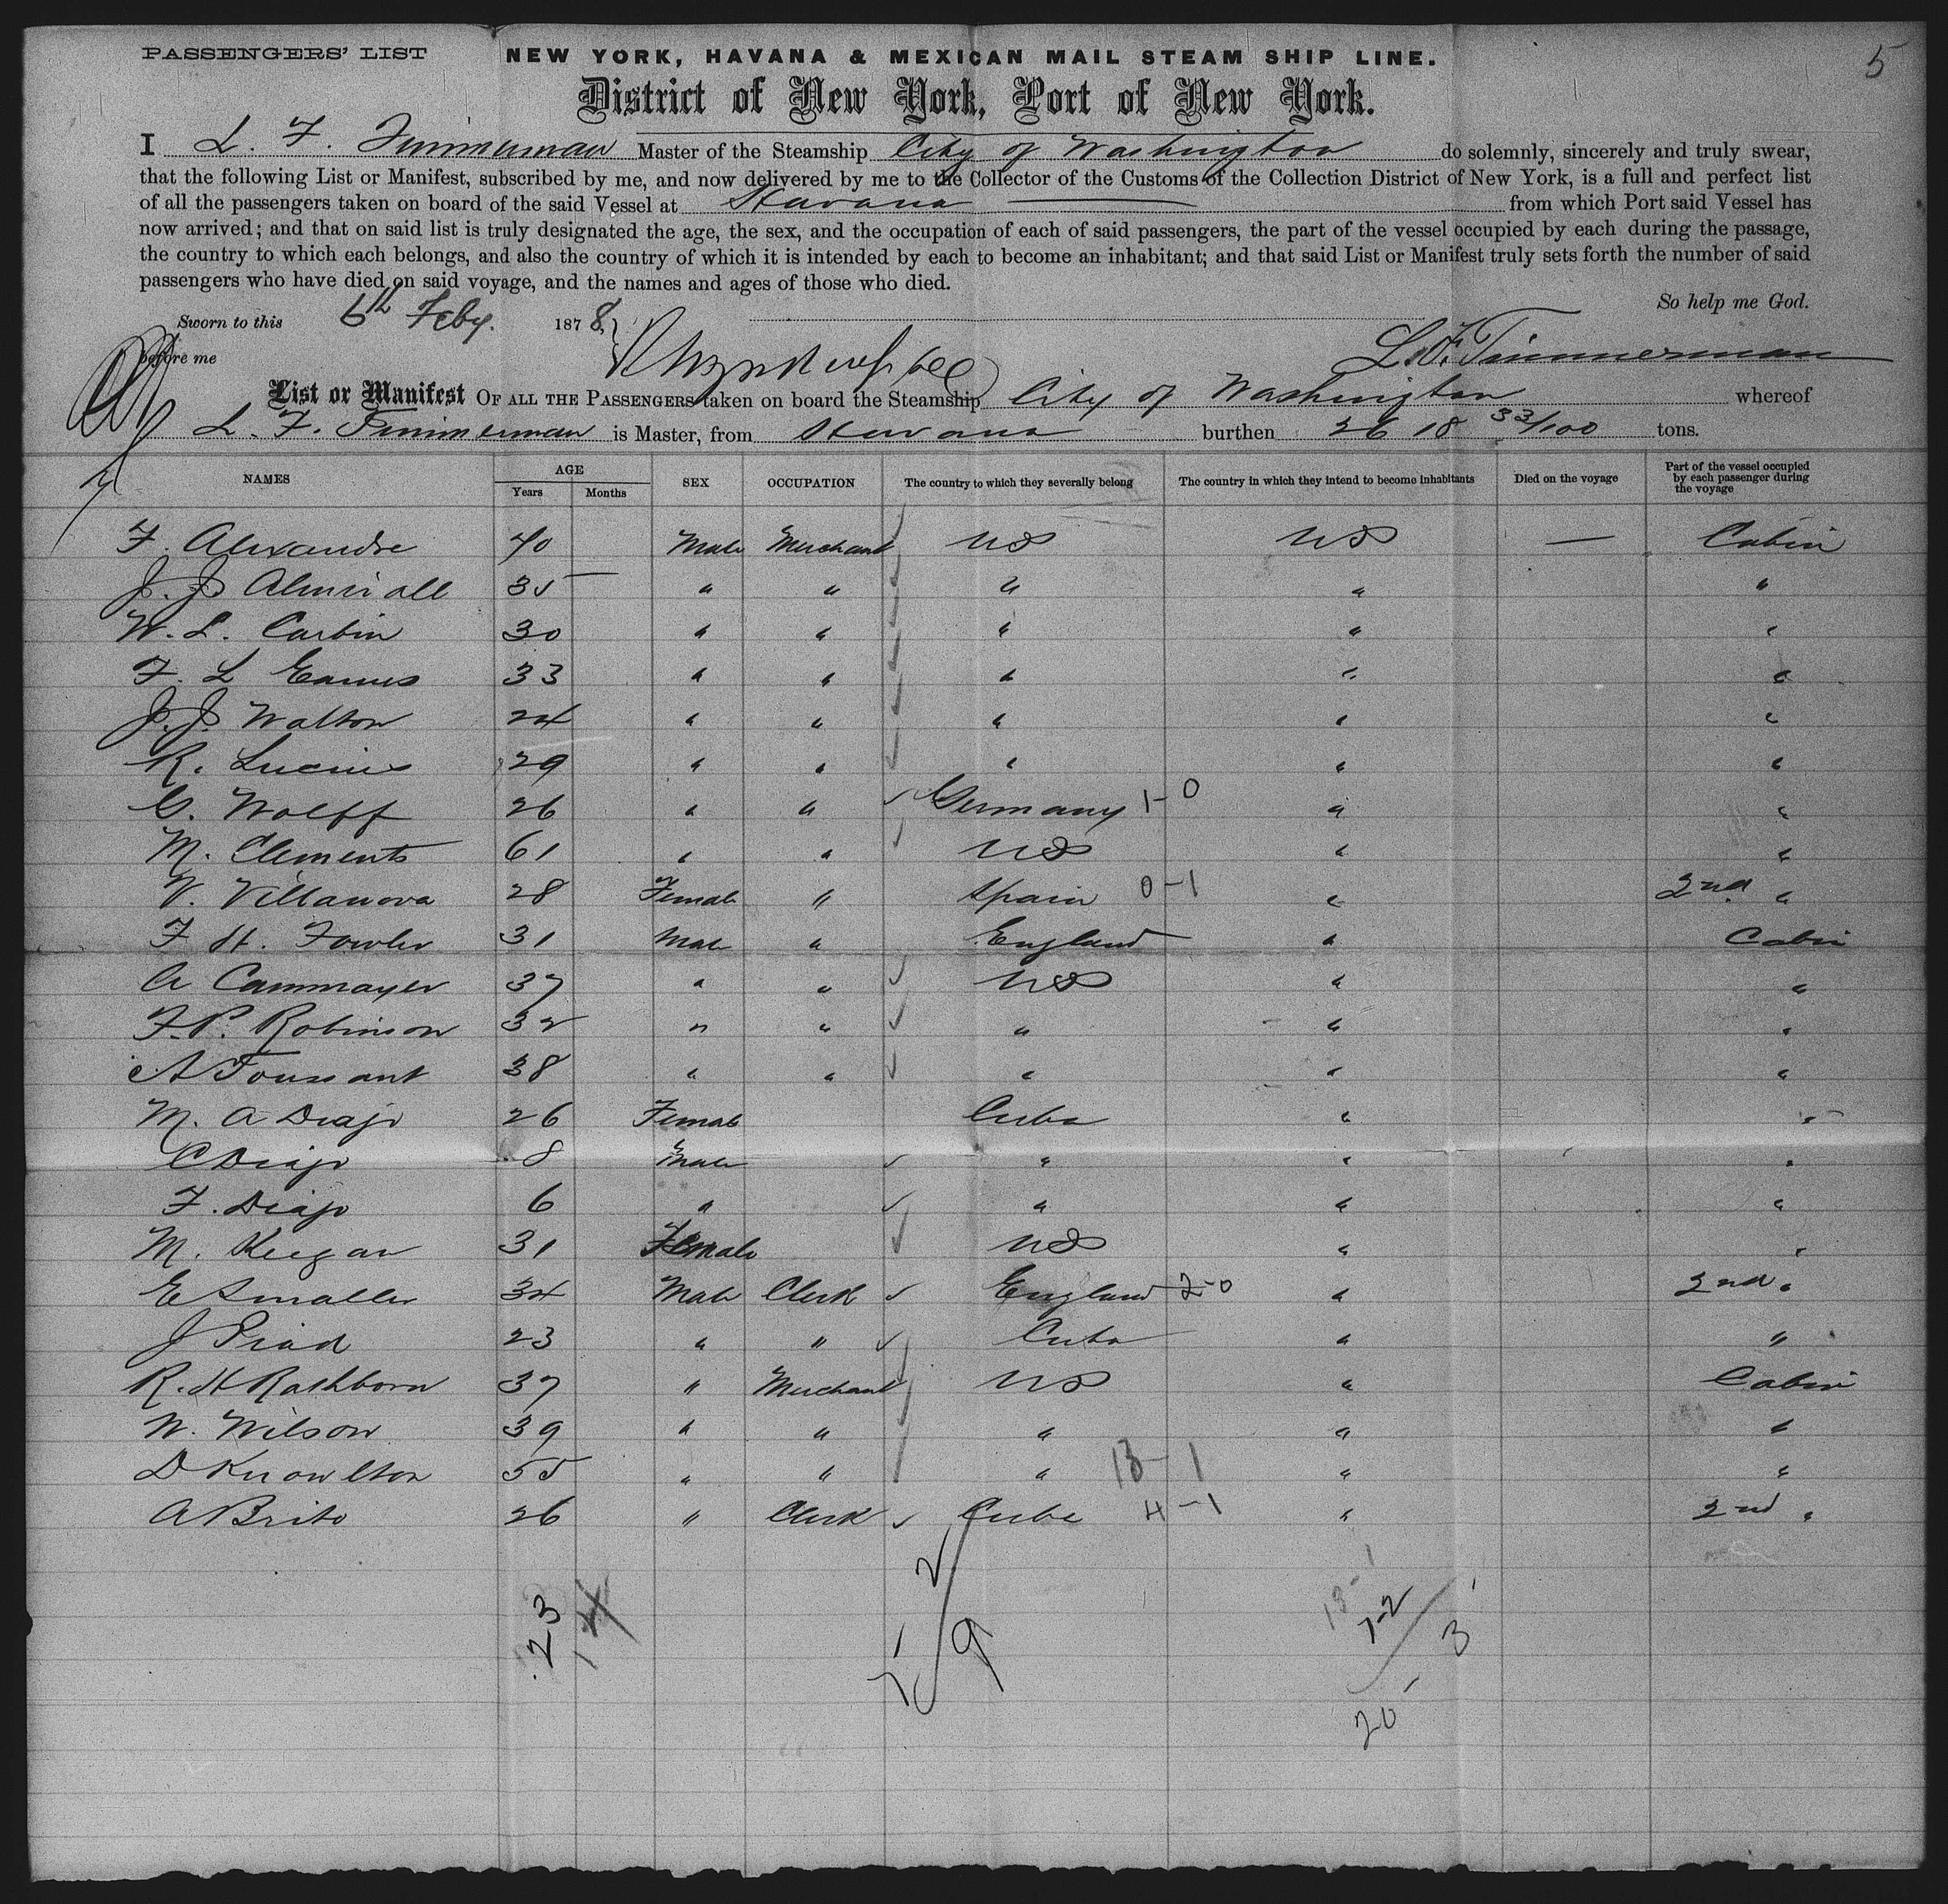 PASSENGERS' LIST NEW YORK, HAVANA & MEXICAN MAIL STEAM SHIP LINE. 5
District of New York, Port of New York.
I L. F. Timmerman Master of the Steamship City of Washington do solemnly, sincerely and truly swear,
that the following List or Manifest, subscribed by me, and now delivered by me to the Collector of the Customs of the Collection District of New York, is a full and perfect list
of all the passengers taken on board of the said Vessel at Havana from which Port said Vessel has
now arrived; and that on said list is truly designated the age, the sex, and the occupation of each of said passengers, the part of the vessel occupied by each during the passage,
the country to which each belongs, and also the country of which it is intended by each to become an inhabitant; and that said List or Manifest truly sets forth the number of said
passengers who have died on said voyage, and the names and ages of those who died.
So help me God.
Sworn to this 6th Feby. 1878,
before me L. F. Timmerman
List or Manifest OF ALL THE PASSENGERS taken on board the Steamship City of Washington whereof
L. F. Timmerman is Master, from Havana burthen 2618 33/100 tons.
NAMES AGE Years Months SEX OCCUPATION The country to which they severally belong The country in which they intend to become inhabitants Died on the voyage Part of the vessel occupied by each passenger during the voyage
F. Alexandre 40 Male Merchant US US — Cabin
J. J. Almirall 35 " " " " "
W. L. Carbin 30 " " " " "
F. L Eames 33 " " " " "
J. J. Walton 24 " " " " "
R. Lucius 29 " " " " "
G. Wolff 26 " " Germany 1-0 " "
M. Clements 61 " " US " "
V. Villanova 28 Female " Spain 0-1 " 2nd "
F H. Fowler 31 Male " England " Cabin
A Cammayer 37 " " US " "
F. P. Robinson 32 " " " " "
A Toussant 38 " " " " "
M. A Diago 26 Female Cuba " "
C Diago 8 Male " " "
F. Diago 6 " " " "
M. Keegan 31 Female US " "
E Smaller 34 Male Clerk England 2-0 " 2nd "
J Piad 23 " " Cuba " "
R. H Rathborn 37 " Merchant US " Cabin
W. Wilson 39 " " " " "
D Knowlton 55 " " " 13-1 " "
A Brito 26 " Clerk Cuba 4-1 " 2nd "
23
2
9
7-2
3
20